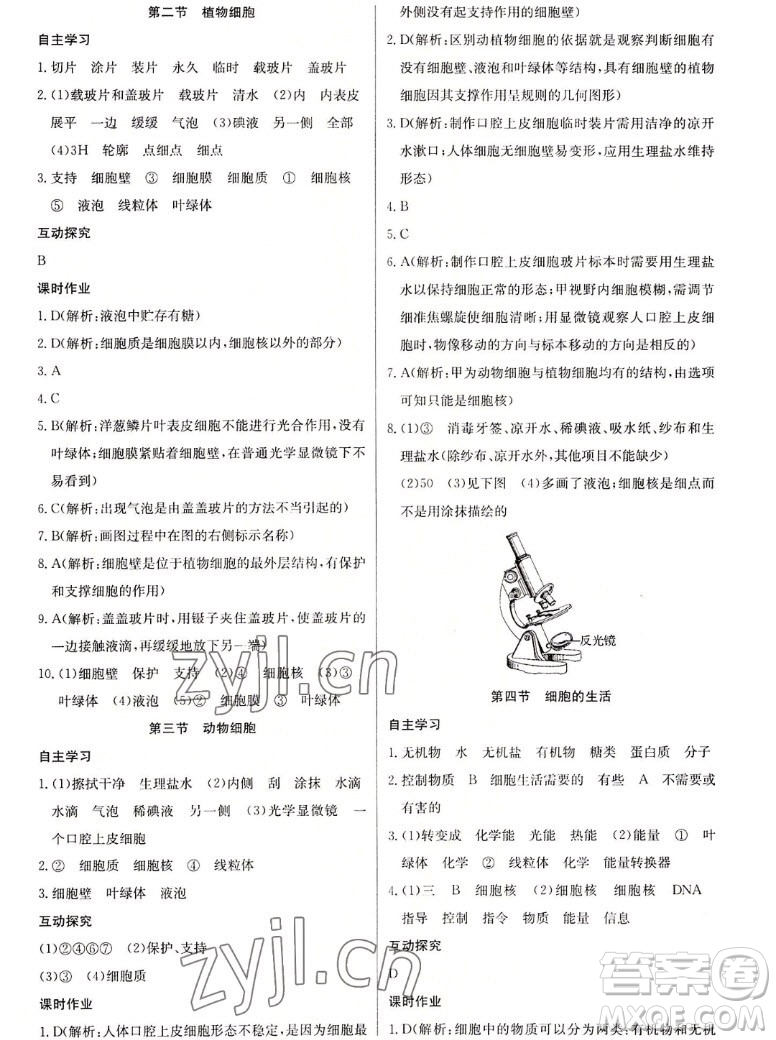 第二节 植物细胞
自主学习
1. 切片 涂片 装片 永久 临时 载玻片 盖玻片
2. (1)载玻片和盖玻片 载玻片 清水 (2)内 内表皮
展平 一边 缓缓 气泡 (3)碘液 另一侧 全部
(4)3H 轮廓 点细点 细点
3. 支持 细胞壁 ③ 细胞膜 细胞质 ① 细胞核
⑤ 液泡 线粒体 叶绿体
互动探究
B
课时作业
1. D(解析:液泡中贮存有糖)
2. D(解析:细胞质是细胞膜以内,细胞核以外的部分)
3. A
4. C
5. B(解析:洋葱鳞片叶表皮细胞不能进行光合作用,没有
叶绿体;细胞膜紧贴着细胞壁,在普通光学显微镜下不
易看到)
6. C(解析:出现气泡是由盖盖玻片的方法不当引起的)
7. B(解析:画图过程中在图的右侧标示名称)
8. A(解析:细胞壁是位于植物细胞的最外层结构,有保护
和支撑细胞的作用)
9. A(解析:盖盖玻片时,用镊子夹住盖玻片,使盖玻片的
一边接触液滴,再缓缓地放下另一端)
10. (1)细胞壁 保护 支持 (2)④ 细胞核 (3)③
叶绿体 (4)液泡 (5)② 细胞膜 ④ 细胞核
第三节 动物细胞
自主学习
1. (1)擦拭干净 生理盐水 (2)内侧 刮 涂抹 水滴
水滴 气泡 稀碘液 另一侧 (3)光学显微镜 一
个口腔上皮细胞
2. ② 细胞质 细胞核 ④ 线粒体
3. 细胞壁 叶绿体 液泡
互动探究
(1)②④⑥⑦ (2)保护、支持
(3)③ (4)细胞质
课时作业
1. D(解析:人体口腔上皮细胞形态不稳定,是因为细胞最
外侧没有起支持作用的细胞壁)
2. D(解析:区别动植物细胞的依据就是观察判断细胞有
没有细胞壁、液泡和叶绿体等结构,具有细胞壁的植物
细胞因其支撑作用呈规则的几何图形)
3. D(解析:制作口腔上皮细胞临时装片需用洁净的凉开
水漱口;人体细胞无细胞壁易变形,应用生理盐水维持
形态)
4. B
5. C
6. A(解析:制作口腔上皮细胞玻片标本时需要用生理盐
水以保持细胞正常的形态;甲视野内细胞模糊,需调节
细准焦螺旋使细胞清晰;用显微镜观察人口腔上皮细
胞时,物像移动的方向与标本移动的方向相反)
7. A(解析:甲为动物细胞与植物细胞均有的结构,由选项
可知只能是细胞核)
8. (1)③ 消毒牙签、凉开水、稀碘液、吸水纸、纱布和生
理盐水(除纱布、凉开水外,其他不能缺少)
(2)50 (3)见下图 (4)多画了液泡;细胞核是细点而
不是用涂抹描绘的
反光镜
第四节 细胞的生活
自主学习
1. 无机物 水 无机盐 有机物 糖类 蛋白质 分子
2. 控制物质 B 细胞生活需要的 有些 A 不需要或
有害的
3. (1)转变成 化学能 光能 热能 (2)能量 ① 叶
绿体 化学 ② 线粒体 化学能 能量转换器
4. (1)三 B 细胞核 (2)细胞核 细胞核 DNA
指导 控制 指令 物质 能量 信息
互动探究
D
课时作业
1. D(解析:细胞中的物质可以分为两类:有机物和无机
zyjl.cn
zyjl.cn
答案圈
MXQE.COM